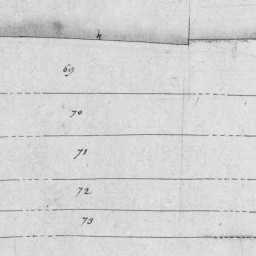 h
69
70
71
72
73